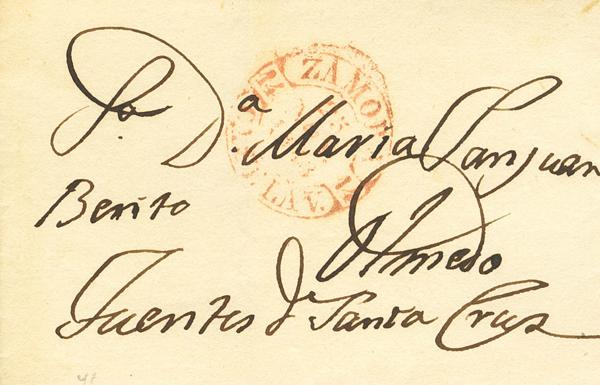 Sra. Da. Maria Sanjuan
Benito
Olmedo
Fuentes de Santa Cruz
ZAMORA